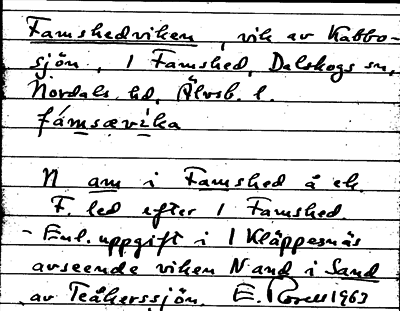 Famshedviken, vik av Kabbo-
sjön, 1 Famshed, Dalskogs sn,
Nordals hd, Älvsb. l.
fámsævíka
N am i Famshed å ek.
F. led efter 1 Famshed.
- Enl. uppgift i 1 Kläppesnäs
avseende viken N and i Sand
av Teåkerssjön. E. Rosell 1963